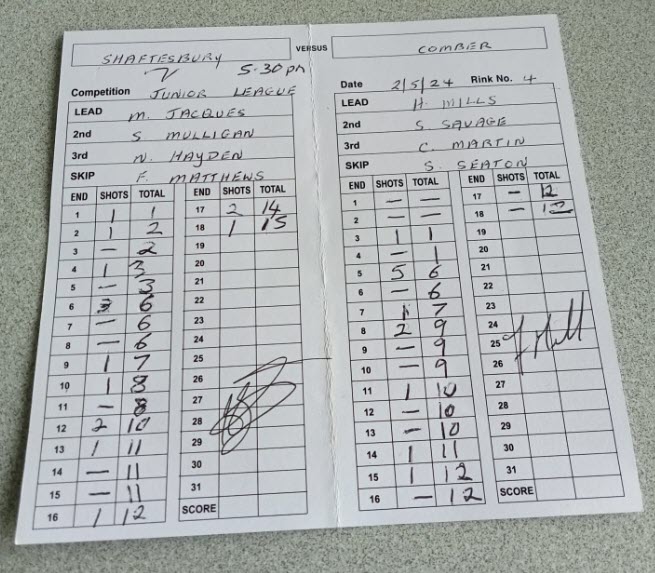 SHAFTESBURY VERSUS COMBER
5.30 pm
Competition JUNIOR LEAGUE
LEAD M. JACQUES
2nd S. MULLIGAN
3rd N. HAYDEN
SKIP F. MATTHEWS
END SHOTS TOTAL END SHOTS TOTAL
1 1 1 17 2 14
2 1 2 18 1 15
3 — 2 19
4 1 3 20
5 — 3 21
6 3 6 22
7 — 6 23
8 — 6 24
9 1 7 25
10 1 8 26
11 — 8 27
12 2 10 28
13 1 11 29
14 — 11 30
15 — 11 31
16 1 12 SCORE
Date 2/5/24 Rink No. 4
LEAD H. MILLS
2nd S. SAVAGE
3rd C. MARTIN
SKIP S. SEATON
END SHOTS TOTAL END SHOTS TOTAL
1 — — 17 — 12
2 — — 18 — 12
3 1 1 19
4 — 1 20
5 5 6 21
6 — 6 22
7 1 7 23
8 2 9 24
9 — 9 25
10 — 9 26
11 1 10 27
12 — 10 28
13 — 10 29
14 1 11 30
15 1 12 31
16 — 12 SCORE